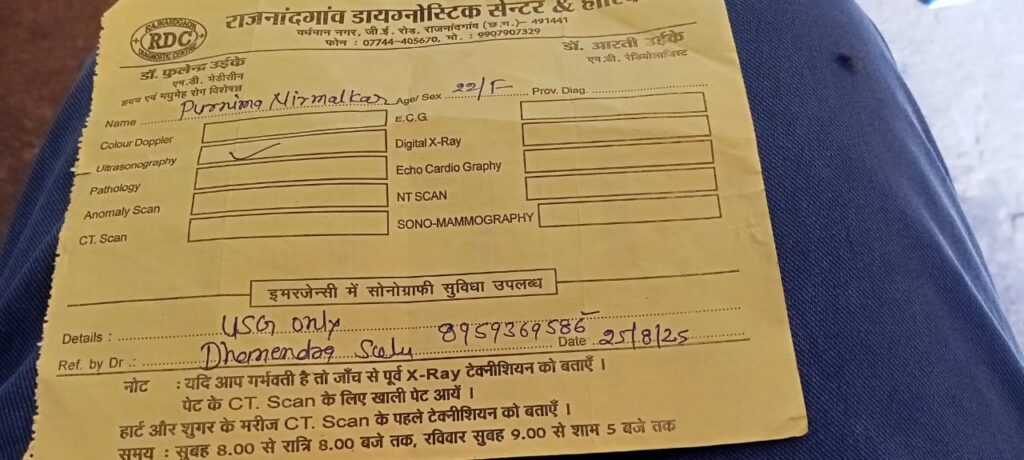 राजनांदगांव डायग्नोस्टिक सेन्टर &
RAJNANDGAON
RDC
DIAGNOSTIC CENTRE
वर्धमान नगर, जी.ई. रोड, राजनांदगांव (छ.ग.)- 491441
फोन : 07744-405670, मो. : 9907907329
डॉ. फुलेन्द्र उईके
एम.डी. मेडीसीन
हृदय एवं मधुमेह रोग विशेषज्ञ
डॉ. आरती उईके
एम.डी. रेडियोलाजिस्ट
Name Purnima Nirmalkar Age/ Sex 22/F Prov. Diag.
Colour Doppler E.C.G.
Ultrasonography ✓ Digital X-Ray
Pathology Echo Cardio Graphy
Anomaly Scan NT SCAN
CT. Scan SONO-MAMMOGRAPHY
इमरजेन्सी में सोनोग्राफी सुविधा उपलब्ध
Details : USG only 8959369586
Ref. by Dr .: Date 25/8/25
नोट : यदि आप गर्भवती है तो जाँच से पूर्व X-Ray टेक्नीशियन को बताएँ ।
पेट के CT. Scan के लिए खाली पेट आयें ।
हार्ट और शुगर के मरीज CT. Scan के पहले टेक्नीशियन को बताएँ ।
समय : सुबह 8.00 से रात्रि 8.00 बजे तक, रविवार सुबह 9.00 से शाम 5 बजे तक